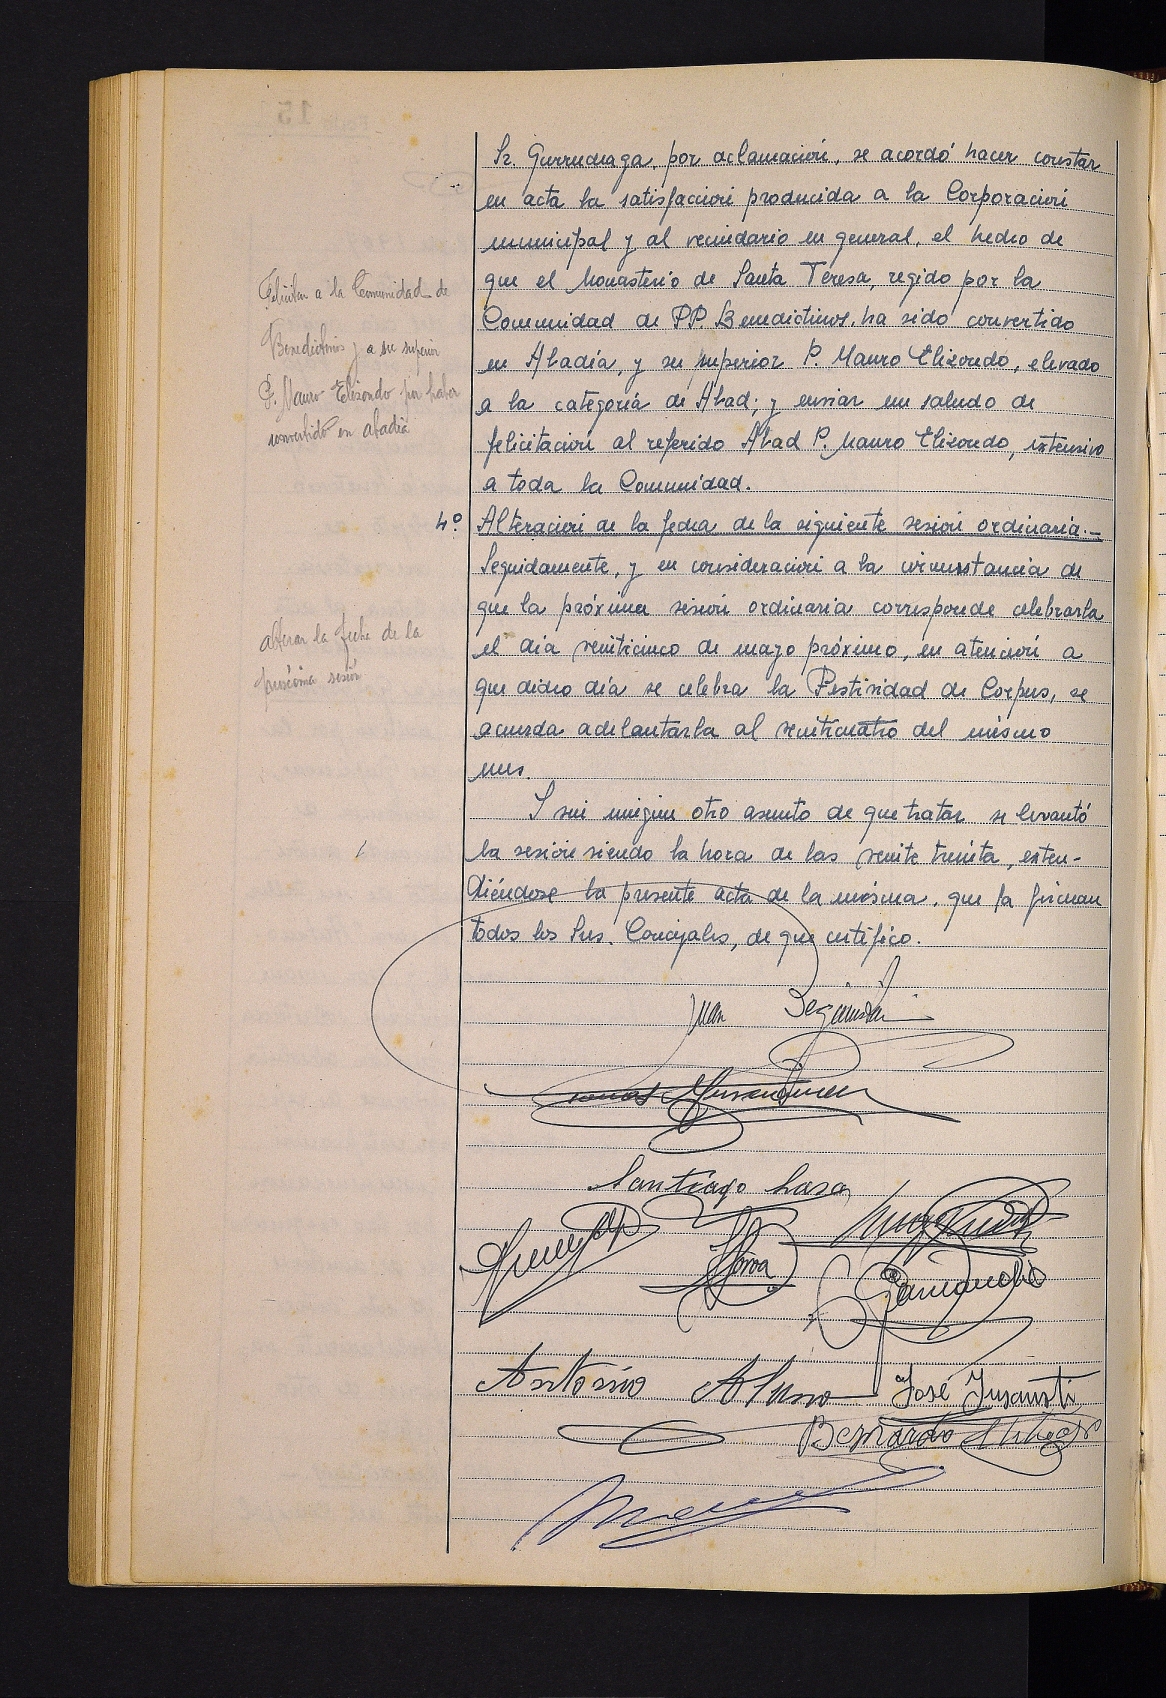 Sr. Gurruchaga, por aclamación, se acordó hacer constar
en acta la satisfacción producida a la Corporación
municipal y al vecindario en general, el hecho de
que el Monasterio de Santa Teresa, regido por la
Comunidad de PP. Benedictinos, ha sido convertido
en Abadía, y su superior P. Mauro Elizondo, elevado
a la categoría de Abad; y enviar un saludo de
felicitación al referido Abad P. Mauro Elizondo, extensivo
a toda la Comunidad.
Felicitar a la Comunidad de
Benedictinos y a su superior
P. Mauro Elizondo por haber
convertido en abadía
4º Alteración de la fecha de la siguiente sesión ordinaria.-
Seguidamente, y en consideración a la circunstancia de
que la próxima sesión ordinaria corresponde celebrarla
el día veinticinco de mayo próximo, en atención a
que dicho día se celebra la Festividad de Corpus, se
acuerda adelantarla al veinticuatro del mismo
mes.
alterar la fecha de la
próxima sesión
Y sin ningún otro asunto de que tratar se levantó
la sesión siendo la hora de las veinte treinta, exten-
diéndose la presente acta de la misma, que la firman
todos los Sres. Concejales, de que certifico.
Juan Beguiristain
Santiago Lasa
Antonio Albino
José Insausti
Bernardo